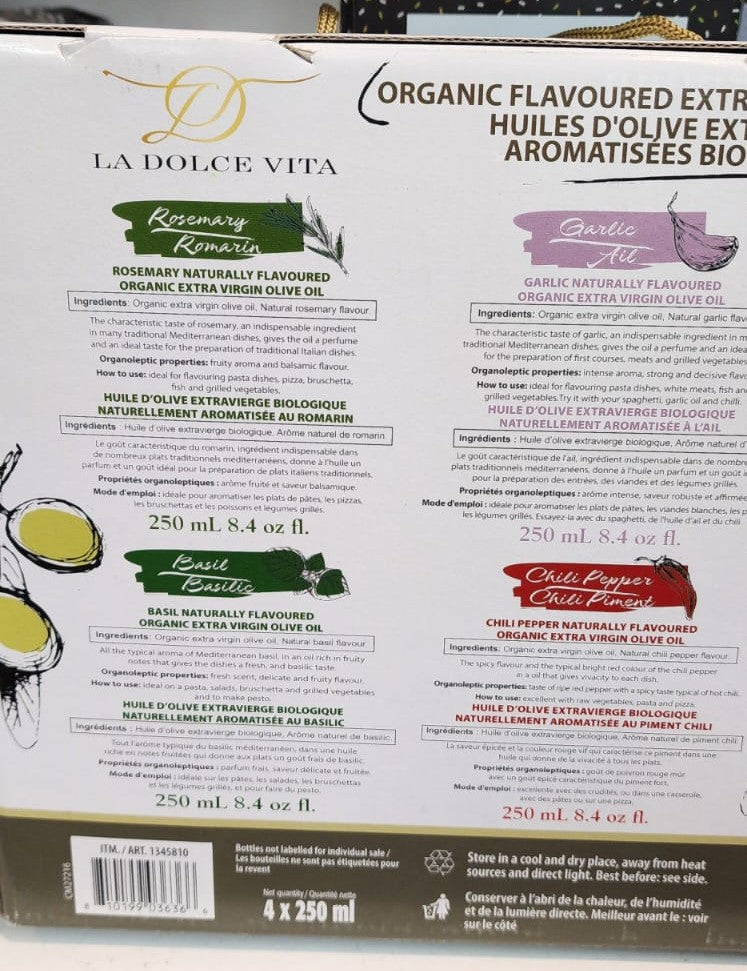 LA DOLCE VITA
ORGANIC FLAVOURED EXTR
HUILES D'OLIVE EXT
AROMATISÉES BIO
Rosemary
Romarin
ROSEMARY NATURALLY FLAVOURED
ORGANIC EXTRA VIRGIN OLIVE OIL
Ingredients: Organic extra virgin olive oil, Natural rosemary flavour.
The characteristic taste of rosemary, an indispensable ingredient
in many traditional Mediterranean dishes, gives the oil a perfume
and an ideal taste for the preparation of traditional Italian dishes.
Organoleptic properties: fruity aroma and balsamic flavour.
How to use: ideal for flavouring pasta dishes, pizza, bruschetta,
fish and grilled vegetables.
HUILE D'OLIVE EXTRAVIERGE BIOLOGIQUE
NATURELLEMENT AROMATISÉE AU ROMARIN
Ingredients : Huile d'olive extravierge biologique, Arôme naturel de romarin
Le goût caractéristique du romarin, ingrédient indispensable dans
de nombreux plats traditionnels méditerranéens, donne à l'huile un
parfum et un goût idéal pour la préparation de plats italiens traditionnels.
Propriétés organoleptiques : arôme fruité et saveur balsamique.
Mode d'emploi : idéale pour aromatiser les plats de pâtes, les pizzas,
les bruschettas et les poissons et légumes grillés.
250 mL 8.4 oz fl.
Garlic
Ail
GARLIC NATURALLY FLAVOURED
ORGANIC EXTRA VIRGIN OLIVE OIL
Ingredients: Organic extra virgin olive oil, Natural garlic flav
The characteristic taste of garlic, an indispensable ingredient in m
traditional Mediterranean dishes, gives the oil a perfume and an idea
for the preparation of first courses, meats and grilled vegetables
Organoleptic properties: intense aroma, strong and decisive flavo
How to use: ideal for flavouring pasta dishes, white meats, fish an
grilled vegetables.Try it with your spaghetti, garlic oil and chilli.
HUILE D'OLIVE EXTRAVIERGE BIOLOGIQUE
NATURELLEMENT AROMATISÉE À L'AIL
Ingrédients : Huile d'olive extravierge biologique, Arôme naturel d'
Le goût caractéristique de l'ail, ingrédient indispensable dans de nombre
plats traditionnels méditerranéens, donne à l'huile un parfum et un goût i
pour la préparation des entrées, des viandes et des légumes grillés.
Propriétés organoleptiques : arôme intense, saveur robuste et affirmée
Mode d'emploi : idéale pour aromatiser les plats de pâtes, les viandes blanches, les p
les légumes grillés. Essayez-la avec du spaghetti, de l'huile d'ail et du chili
250 mL 8.4 oz fl.
Basil
Basilic
BASIL NATURALLY FLAVOURED
ORGANIC EXTRA VIRGIN OLIVE OIL
Ingredients: Organic extra virgin olive oil, Natural basil flavour
All the typical aroma of Mediterranean basil, in an oil rich in fruity
notes that gives the dishes a fresh, and basilic taste.
Organoleptic properties: fresh scent, delicate and fruity flavour.
How to use: ideal on a pasta, salads, bruschetta and grilled vegetables
and to make pesto.
HUILE D'OLIVE EXTRAVIERGE BIOLOGIQUE
NATURELLEMENT AROMATISÉE AU BASILIC
Ingrédients : Huile d'olive extravierge biologique, Arôme naturel de basilic.
Tout l'arôme typique du basilic méditerranéen, dans une huile
riche en notes fruitées qui donne aux plats un goût frais de basilic.
Propriétés organoleptiques : parfum frais, saveur délicate et fruitée.
Mode d'emploi : idéale sur les pâtes, les salades, les bruschettas
et les légumes grillés, et pour faire du pesto.
250 mL 8.4 oz fl.
Chili Pepper
Chili Piment
CHILI PEPPER NATURALLY FLAVOURED
ORGANIC EXTRA VIRGIN OLIVE OIL
Ingredients: Organic extra virgin olive oil, Natural chili pepper flavour.
The spicy flavour and the typical bright red colour of the chili pepper
in a oil that gives vivacity to each dish.
Organoleptic properties: taste of ripe red pepper with a spicy taste typical of hot chili.
How to use: excellent with raw vegetables, pasta and pizza.
HUILE D'OLIVE EXTRAVIERGE BIOLOGIQUE
NATURELLEMENT AROMATISÉE AU PIMENT CHILI
Ingrédients : Huile d'olive extravierge biologique, Arôme naturel de piment chili
La saveur épicée et la couleur rouge vif qui caractérise ce piment dans une
huile qui donne de la vivacité à tous les plats.
Propriétés organoleptiques : goût de poivron rouge mûr
avec un goût épicé caractéristique du piment fort.
Mode d'emploi : excellente avec des crudités, ou dans une casserole,
avec des pâtes ou sur une pizza.
250 mL 8.4 oz fl.
CM27216
ITM. / ART. 1345810
6 10199 03636 6
Bottles not labelled for individual sale /
Les bouteilles ne sont pas étiquetées pour
la revent
Net quantity / Quantité nette
4 x 250 ml
Store in a cool and dry place, away from heat
sources and direct light. Best before: see side.
Conserver à l'abri de la chaleur, de l'humidité
et de la lumière directe. Meilleur avant le : voir
sur le côté